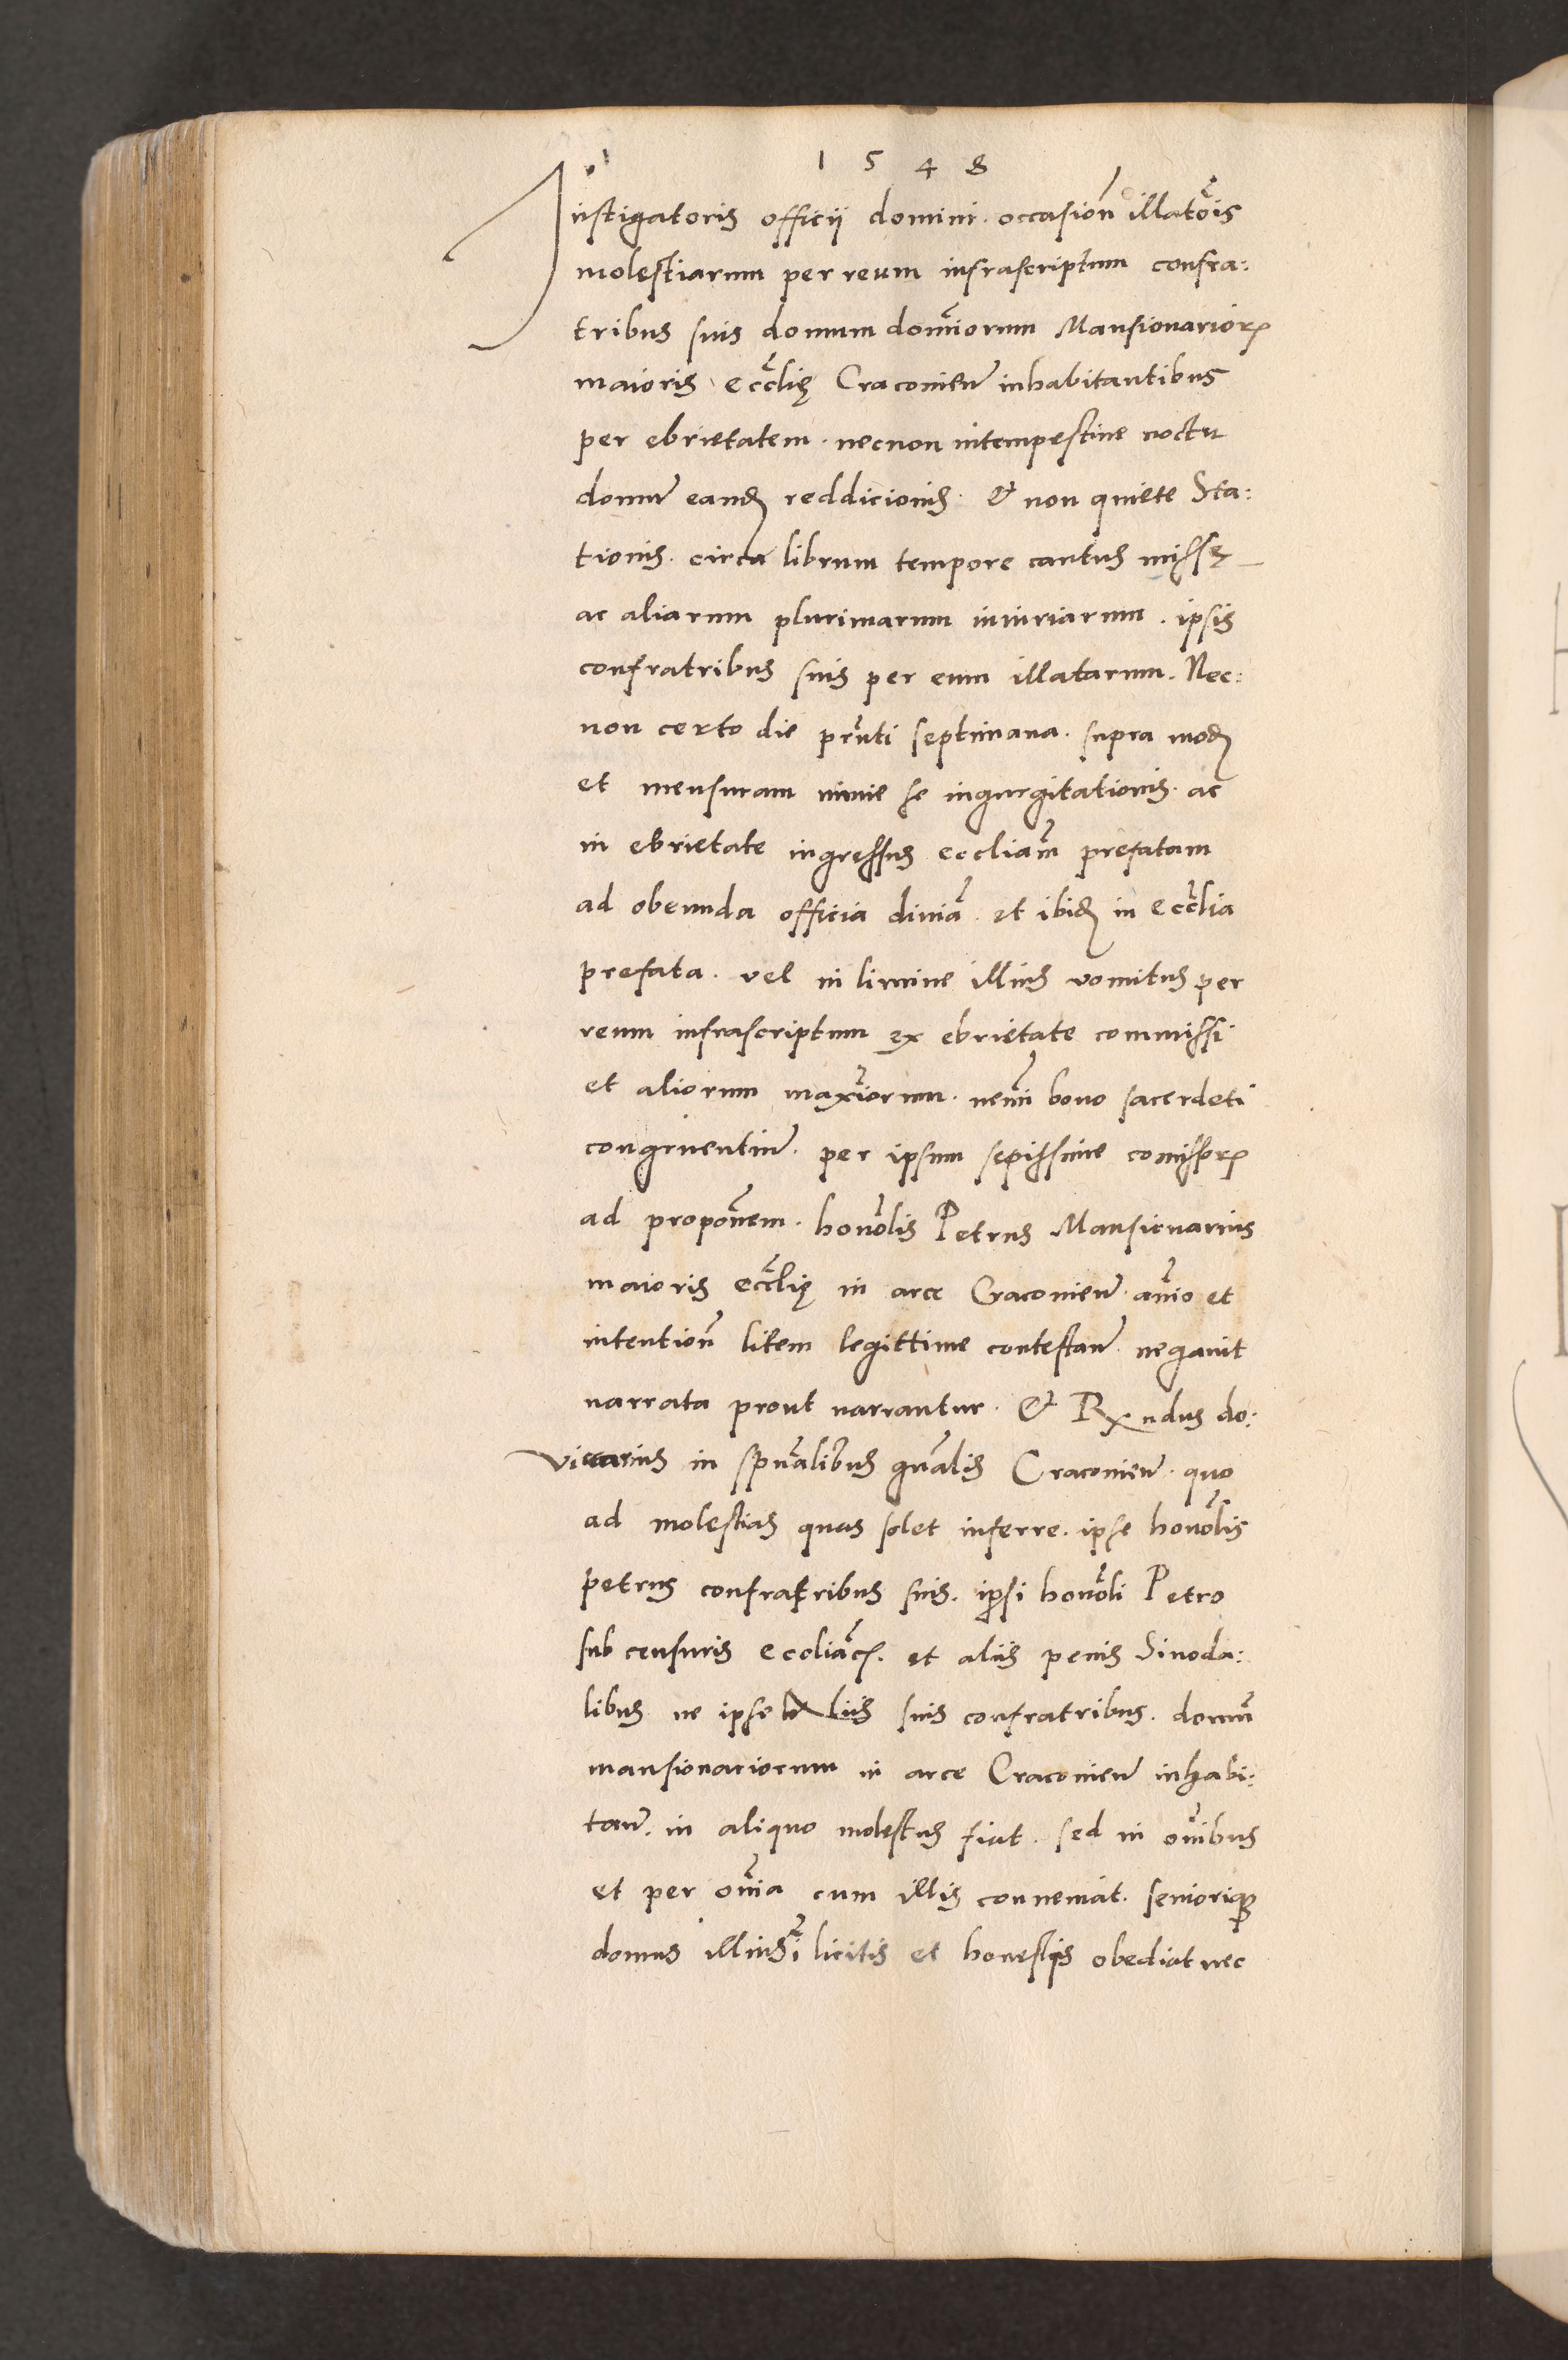 1 5 4 8
Instigatoris officii domini. occasion̄ illatōis
molestiarum per reum infrascriptum confra:
tribus suis domum domīorum Mansionarioꝝ
maioris eccl̄ię Cracovien̄ inhabitantibus
per ebrietatem. necnon intempestive noctu
domum̄ eandꝫ reddicionis. & non quiete Sta:
tionis. circa librum tempore cantus missę
ac aliarum plurimarum iniuriarum. ipsis
confratribus suis per eum illatarum. Nec:
non certo die pr̄nti septimana. supra modꝫ
et mensuram nimie se ingurgitationis. ac
in ebrietate ingressus eccliam̄ prefatam
ad obeunda officia divīa. et ibidꝫ in eccl̄ia
prefata. vel in limine illius vomitus per
reum infrascriptum ex ebrietate commissi
et aliorum maxīorum. nemī bono sacerdoti
congruentium̄. per ipsum sepissime comissoꝝ
ad propon̄em. honōlis Petrus Mansionarius
maioris eccl̄ię in arce Cracovien̄. anīo et
intention̄ litem legittime contestan̄. negavit
narrata prout narrantur. & Rx ndus do:
vicarius in spūalibus gn̄alis Cracovien̄. quo
ad molestias quas solet inferre. ipse honōlis
petrus confratribus suis. ipsi honōli Petro
sub censuris eccliācꝭ. et aliis penis Sinoda:
libus ne ipse aliis suis confratribus. domum̄
mansionariorum in arce Cracovien̄ inhabi:
tan̄. in aliquo molestus fiat. sed in om̄ibus
et per om̄ia cum illis conveniat. seniorique
domus illius ī licitis et honestis obediat nec